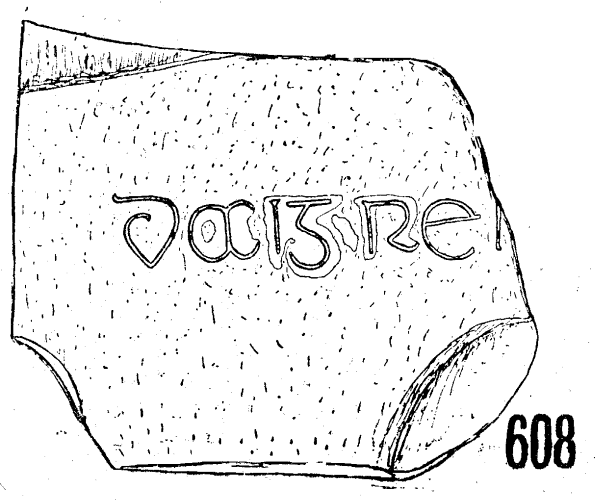 daigre
608